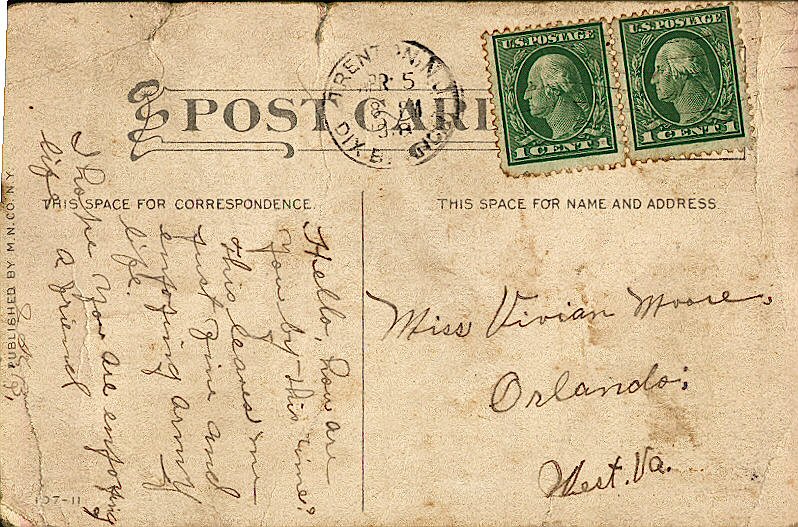 POST CARD
TRENTON, N.J.
APR 5
8 PM
DIX B
U.S. POSTAGE
1 CENT 1
U.S. POSTAGE
1 CENT 1
THIS SPACE FOR CORRESPONDENCE.
THIS SPACE FOR NAME AND ADDRESS
Hello, how are
you by this time?
this leaves me
just fine and
enjoying army
life.
I hope you are enjoying
life
a friend
Miss Vivian Moore,
Orlando;
West. Va.
PUBLISHED BY M.N.CO. N.Y.
107-11